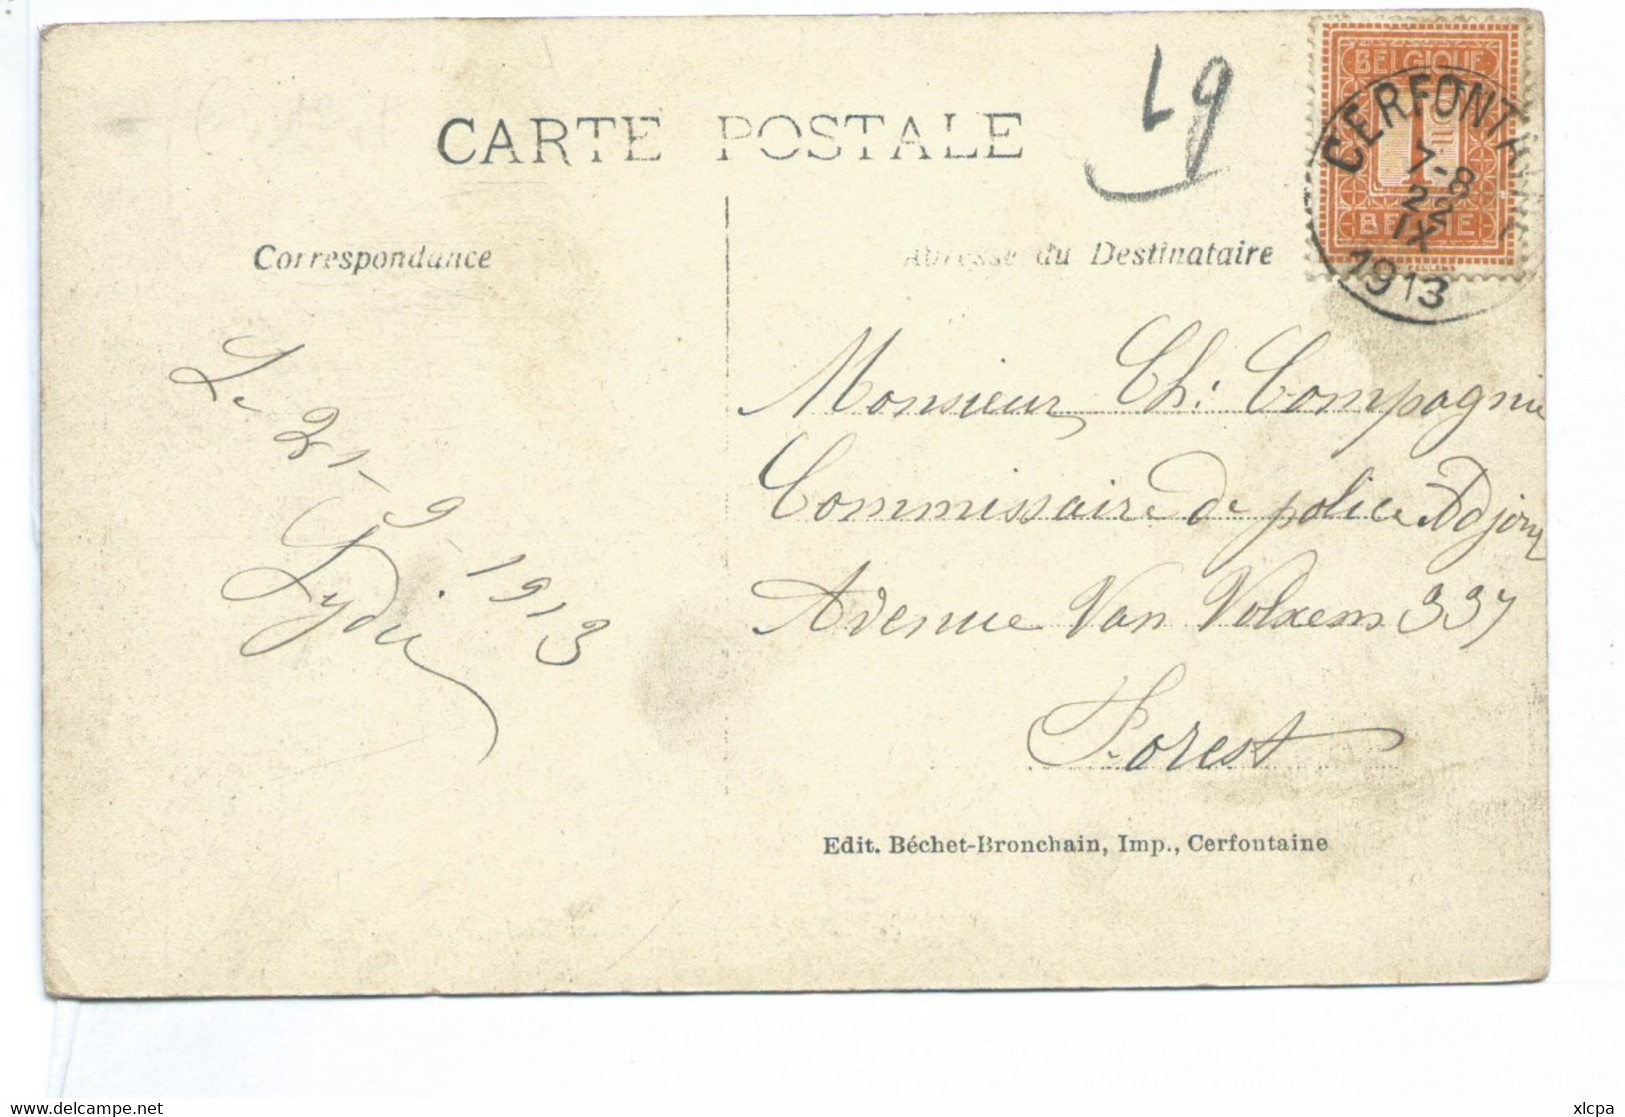 CARTE POSTALE
Lg
BELGIQUE
1
BELGIE
CERFONTAINE
7-8
22
IX
1913
Correspondance
Adresse du Destinataire
Le 21-9-1913
Lydie
Monsieur Ch. Compagnie
Commissaire de police Adjoint
Avenue Van Volxem 337
Forest
Edit. Béchet-Bronchain, Imp., Cerfontaine
www.delcampe.net
xlcpa